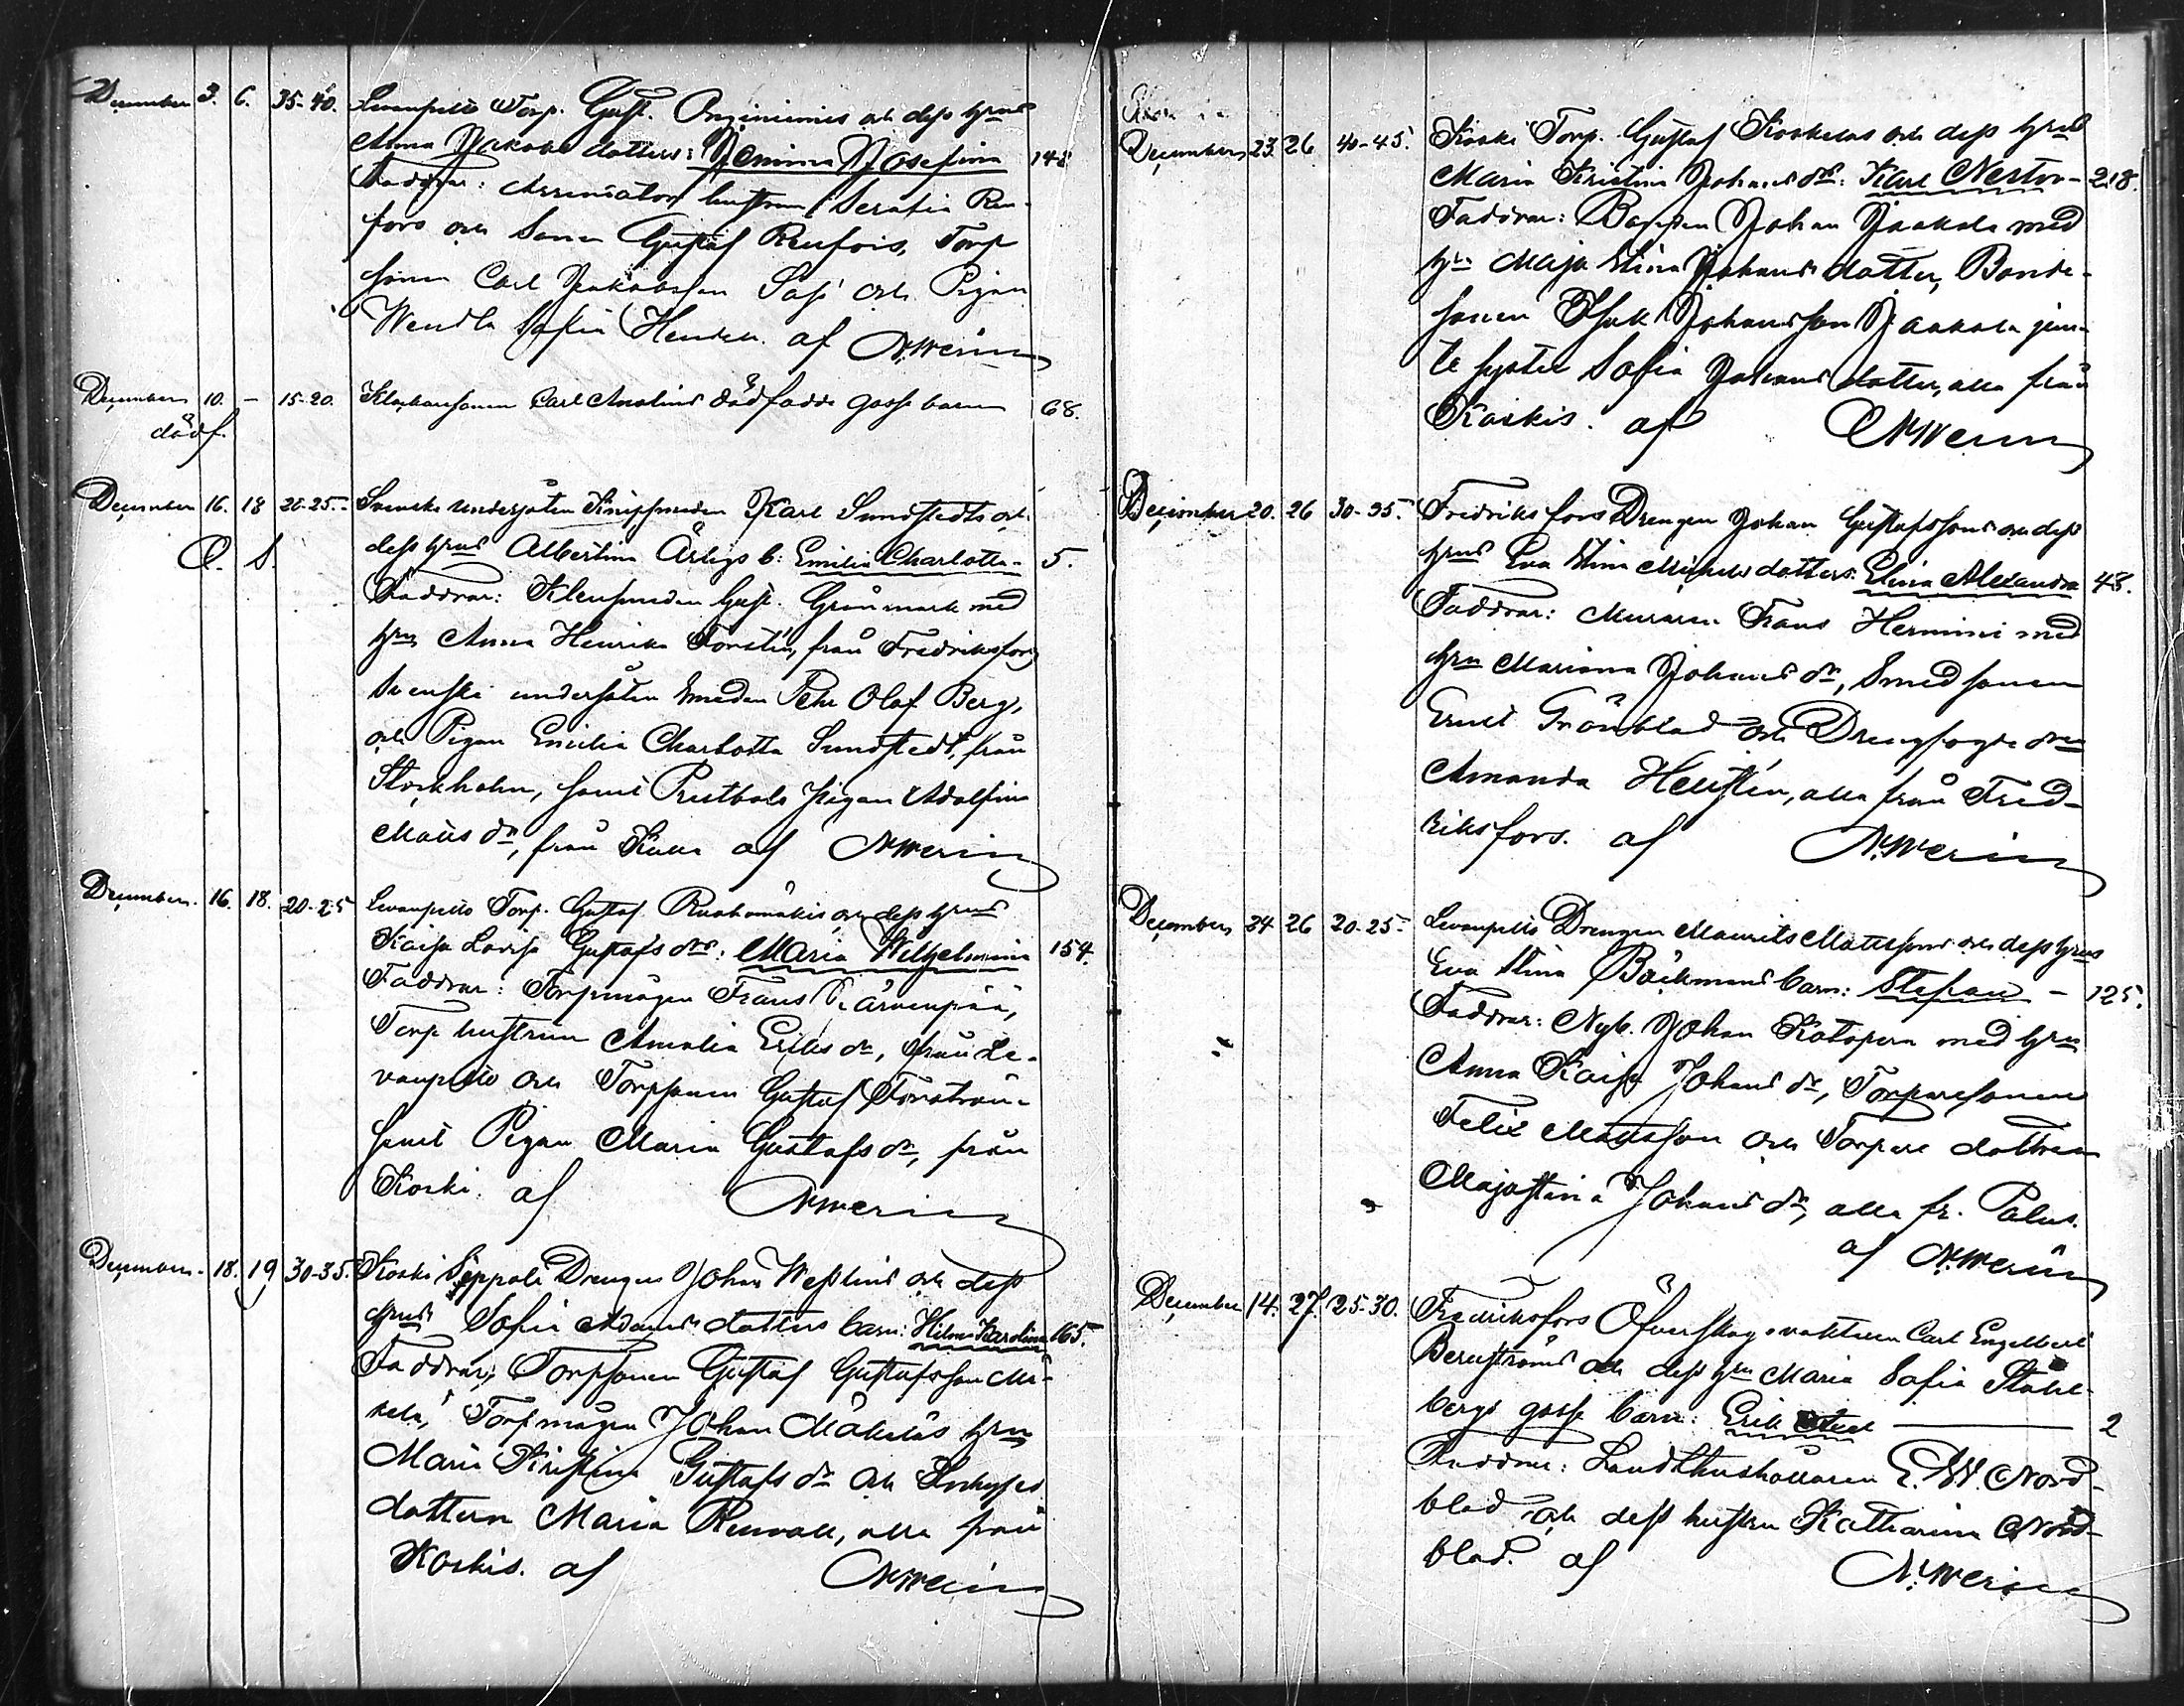 December 3. 6. 35-40. Levanpelto Torp. Gust. och dess hrus
Anna Jakobs dotters: Jemina Josefina 148
Faddrar: hustrun Serafia Ren-
fors och Sonen Gustaf Renfors, Torp
sonen Carl Jakobsson och Pigan
Wendla Sofia af N. Werin
December 10. - 15-20. Carl dödfödde gosse barn 68.
dödf.
December 16. 18 20-25. Svenske undersåten Knipsmeden Karl Sundstedts och
O. S. dess hrus Albertina b: Emilia Charlotta - 5.
Faddrar: Klensmeden Gust. Grönmark med
hru Anna Henrika Forstén, från Fredriksfors
Svenske undersåten Smeden Pehr Olof Berg,
och Pigan Emilia Charlotta Sundstedt, från
Stockholm, samt Prestbols pigan Adolfina
Matts dr, från af N. Werin
December 16. 18. 20-25 Levanpelto Torp. Gustaf Ruohomäkis och dess hrus
Kaisa Lovisa Gustafs drs: Maria Wilhelmina 154.
Faddrar: Torpmågen Frans Järvenpää,
Torp hustrun Amalia Eriks dr, från Le-
vanpelto och Torpsonen Gustaf
samt Pigan Maria Gustafs dr, från
Koski. af N. Werin
December 18. 19 30-35. Koski Seppälä Drengen Johan Westlins och dess
hrus Sofia Adams dotters barn: Hilma Karolina 165.
Faddrar, Torpsonen Gustaf Gustafsson Mä-
kelä, Torpmågen Johan Mäkeläs hru
Maria Kristina Gustafs dr och Inhyses
dottern Maria Renvall, alla från
Koskis. af N. Werin
December 23. 26 40-45. Koski Torp. Gustaf Koskelas och dess hrus
Maria Kristina Johans drs: Karl Nestor - 218.
Faddrar: Johan Jaakola med
hru Maja Stina Johans dotter, Bonde-
sonen Isak Johansson Jaakola jem-
te syster Sofia Johans dotter, alla från
Koskis. af N. Werin
December 20. 26 30-35. Fredriksfors Drengen Johan Gustafssons och dess
hrus Eva Stina Michels dotters: Elina Alexandra 48.
Faddrar: Muraren Frans Hermini med
hru Mariana Johans dr, Smedsonen
Ernst Grönblad och Drengfogde drn
Amanda Hellstén, alla från Fred-
riksfors. af N. Werin
December 24 26 20-25- Levanpelto Drengen Maurits Mattssons och dess hrus
Eva Stina Bäckmans barn: Stefan - 125.
Faddrar: Nyb. Johan med hru
Anna Kaisa Johans dr, Torparesonen
Felix Mattsson och Torpare dottren
Majastina Johans dr, alla fr. Palus.
af N. Werin
December 14. 27. 25-30. Fredriksfors Öfverskogvaktaren Carl Engelbert
Bergströms och dess hru Maria Sofia Stahl-
bergs gosse barn: Erik Axel 2
Faddrar: Landthushållaren E. W. Nord-
blad och dess hustru Katharina Nord-
blad. af N. Werin